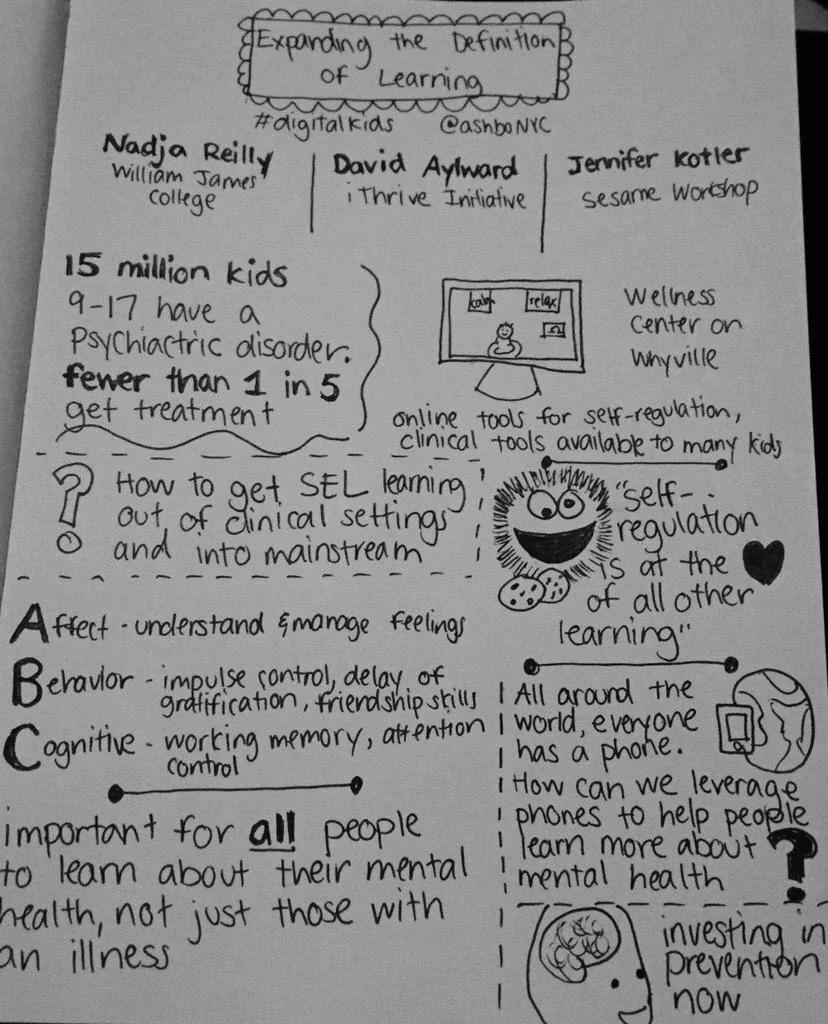 Expanding the Definition
of Learning
#digitalkids @ashboNYC
Nadja Reilly
William James
College
David Aylward
iThrive Initiative
Jennifer Kotler
Sesame Workshop
15 million kids
9-17 have a
Psychiactric disorder.
fewer than 1 in 5
get treatment
calm
relax
Wellness
Center on
Whyville
online tools for self-regulation,
clinical tools available to many kids
? How to get SEL learning
out of clinical settings
and into mainstream
"self-
regulation
is at the ♥
of all other
learning"
Affect - understand & manage feelings
Behavior - impulse control, delay of
gratification, friendship skills
Cognitive - working memory, attention
control
important for all people
to learn about their mental
health, not just those with
an illness
All around the
world, everyone
has a phone.
How can we leverage
phones to help people
learn more about
mental health ?
investing in
prevention
now